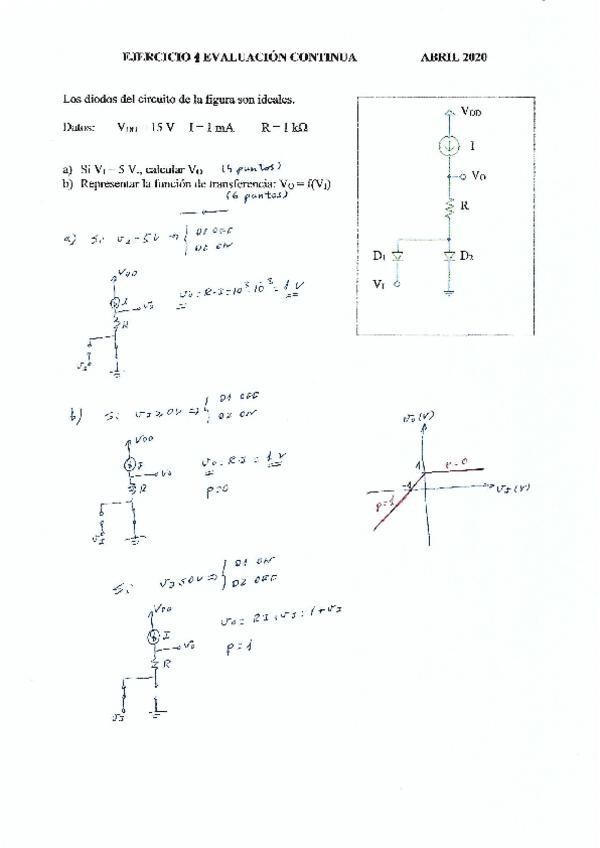 EJERCICIO 1 EVALUACIÓN CONTINUA ABRIL 2020
Los diodos del circuito de la figura son ideales.
Datos: VDD = 15 V I = 1 mA R = 1 kΩ
a) Si VI = 5 V., calcular VO (4 puntos)
b) Representar la función de transferencia: VO = f(VI)
(6 puntos)
VDD
I
VO
R
D1
D2
VI
a) Si vI = 5V ⇒ { D1 OFF
D2 ON
VDD
I
vo
R
vI
vo = R·I = 10³·10⁻³ = 1 V
b) Si vI ≥ 0V ⇒ { D1 OFF
D2 ON
VDD
I
vo
R
vI
vo = R·I = 1 V
p=0
vo (V)
1
p=0
-1
vI (V)
p=1
Si vI ≤ 0V ⇒ { D1 ON
D2 OFF
VDD
I
vo
R
vI
vo = RI + vI = 1 + vI
p=1